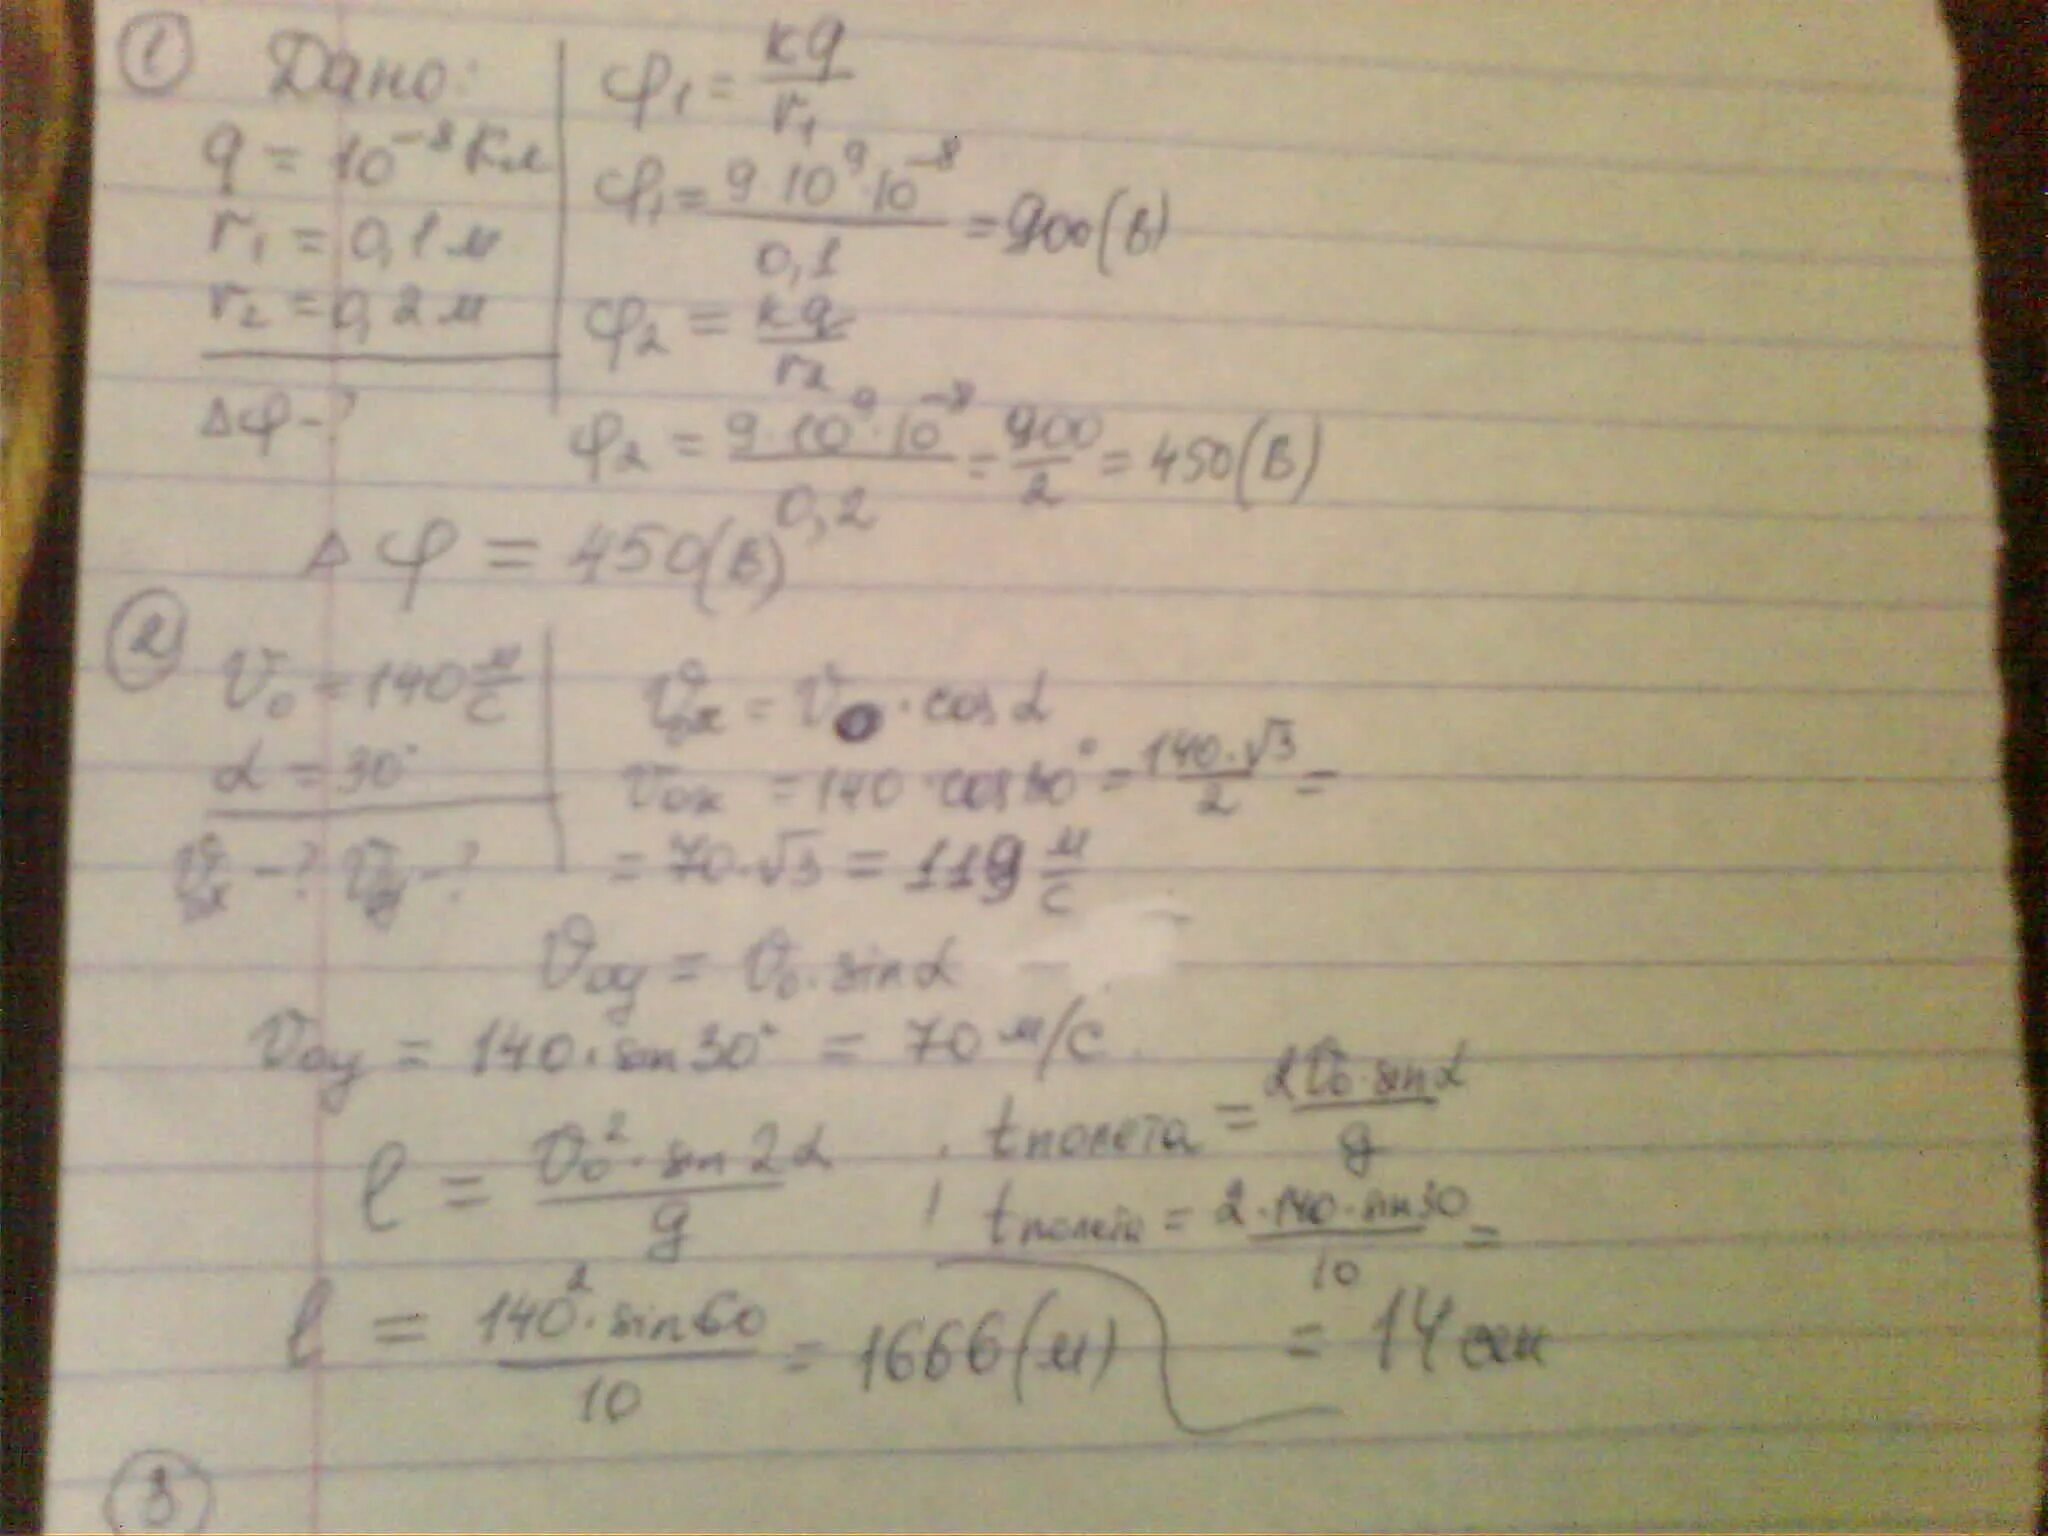 ① Дано:
q = 10⁻⁸ Кл
r₁ = 0,1 м
r₂ = 0,2 м
Δφ - ?
φ₁ = kq / r₁
φ₁ = 9·10⁹·10⁻⁸ / 0,1 = 900 (В)
φ₂ = kq / r₂
φ₂ = 9·10⁹·10⁻⁸ / 0,2 = 900 / 2 = 450 (В)
Δφ = 450 (В)
②
V₀ = 140 м/с
α = 30°
V₀ₓ - ? V₀y - ?
V₀ₓ = V₀ · cos α
V₀ₓ = 140 · cos 30° = 140·√3 / 2 =
= 70·√3 = 119 м/с
V₀y = V₀ · sin α
V₀y = 140 · sin 30° = 70 м/с
l = V₀² · sin 2α / g
l = 140² · sin 60 / 10 = 1666 (м)
t полета = 2V₀ · sin α / g
t полета = 2·140·sin 30 / 10 =
= 14 сек
③